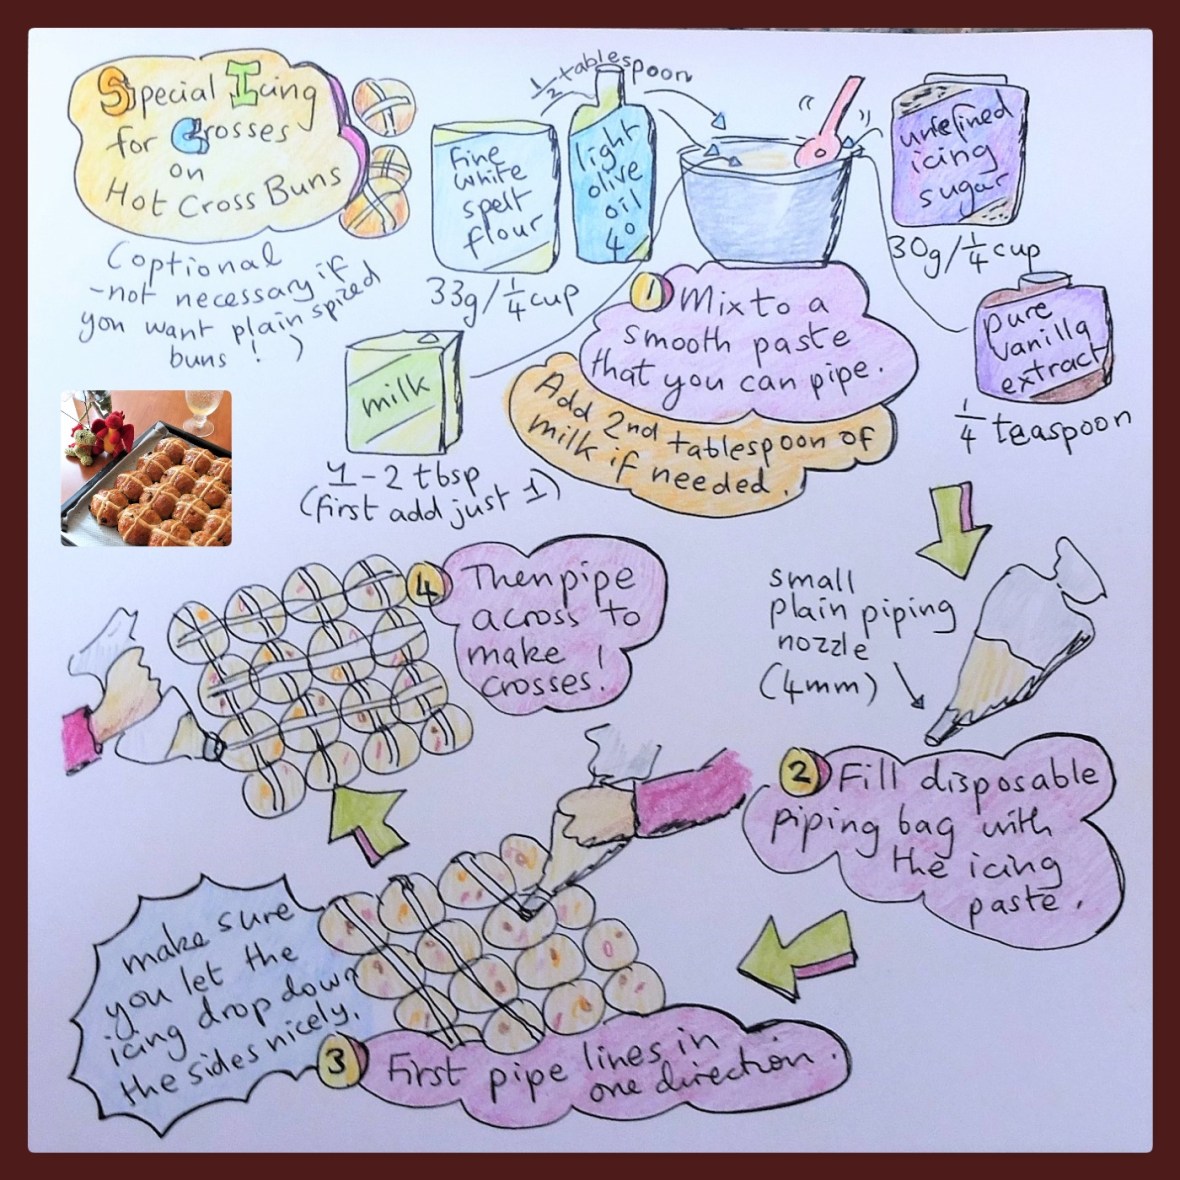 Special Icing
for Crosses
on
Hot Cross Buns
(optional
-not necessary if
you want plain spiced
buns!)
1/2 tablespoon
fine
white
spelt
flour
33g/1/4 cup
light
olive
oil
4°
unrefined
icing
sugar
30g/1/4 cup
pure
vanilla
extract
1/4 teaspoon
milk
1-2 tbsp
(first add just 1)
1 Mix to a
smooth paste
that you can pipe.
Add 2nd tablespoon of
milk if needed.
small
plain piping
nozzle
(4mm)
2 Fill disposable
piping bag with
the icing
paste.
3 First pipe lines in
one direction.
make sure
you let the
icing drop down
the sides nicely.
4 Then pipe
across to
make
crosses!